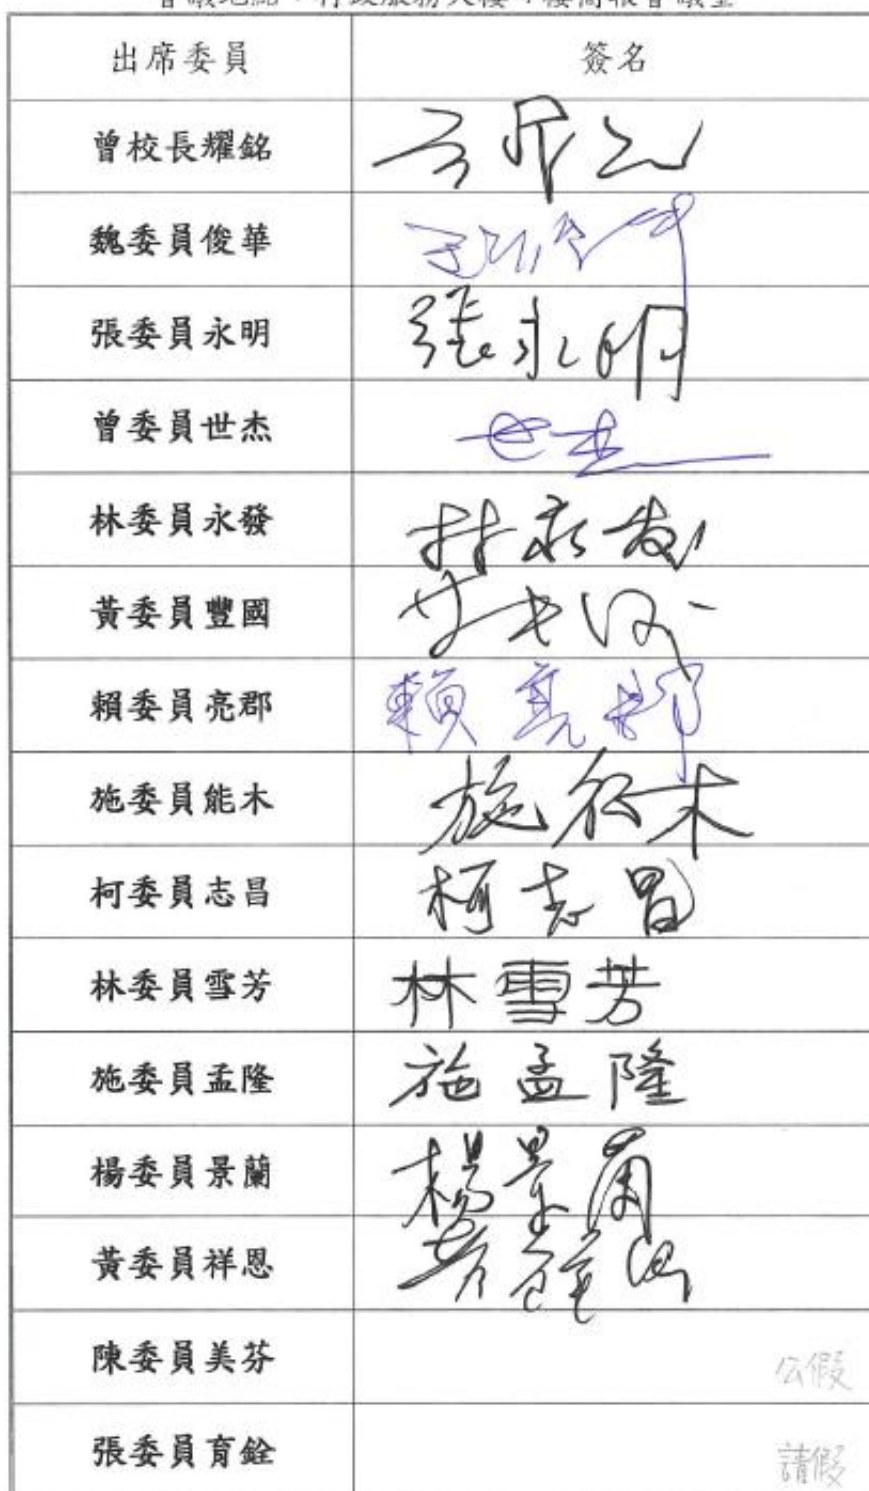 出席委員 簽名
曾校長耀銘
魏委員俊華
張委員永明 張永明
曾委員世杰 世杰
林委員永發 林永发
黃委員豐國
賴委員亮郡 賴亮郡
施委員能木 施能木
柯委員志昌 柯志昌
林委員雪芳 林雪芳
施委員孟隆 施孟隆
楊委員景蘭 楊景
黃委員祥恩
陳委員美芬 公假
張委員育銓 請假